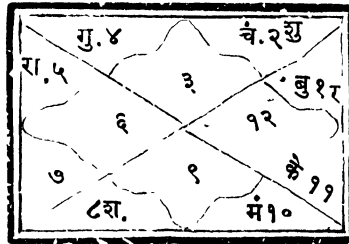 गु. ४ चं. २ शु
रा. ५ ३ बु १ र
६ १२
७ ९ के ११
८ श. मं १०